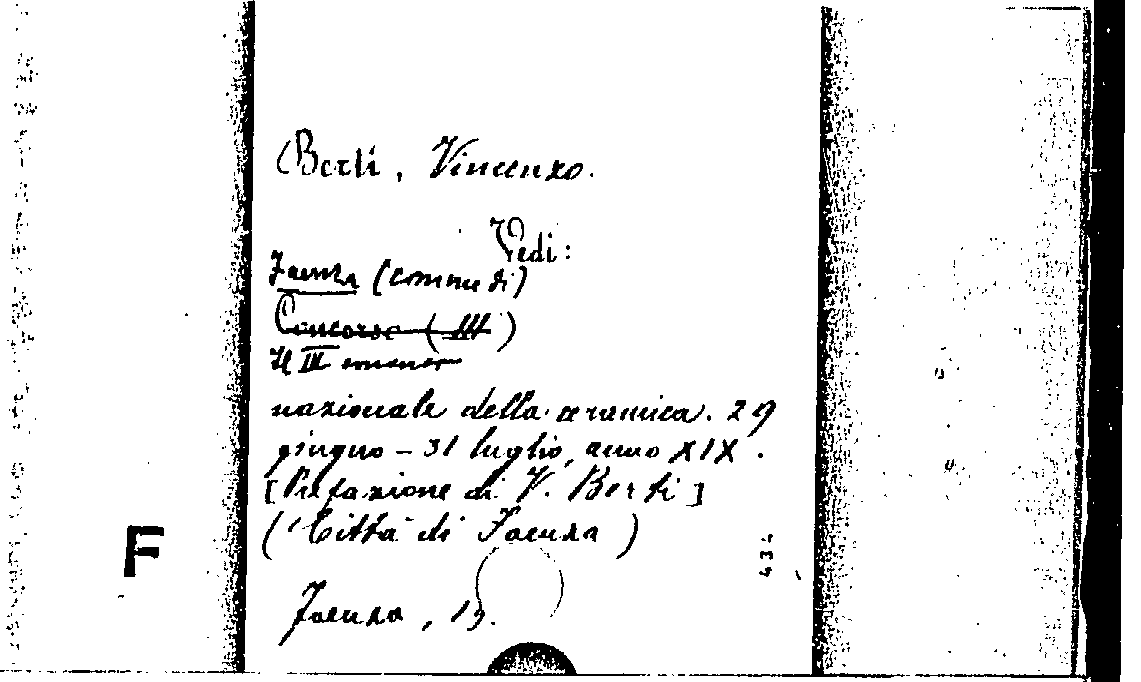 Berti, Vincenzo.
Vedi:
Faenza (Comune di)
Concorso (III)
Il III concorso
nazionale della ceramica. 29
giugno - 31 luglio, anno XIX.
[Prefazione di V. Berti]
(Città di Faenza)
434
Faenza, 19.
F